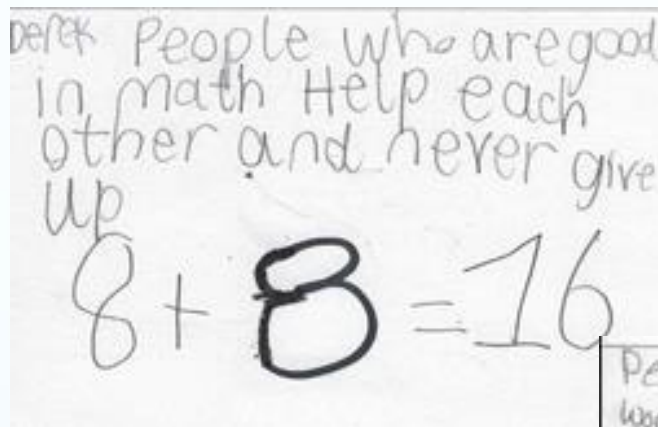 Derek People who are good
in math Help each
other and never give
up
8 + 8 = 16
Pe